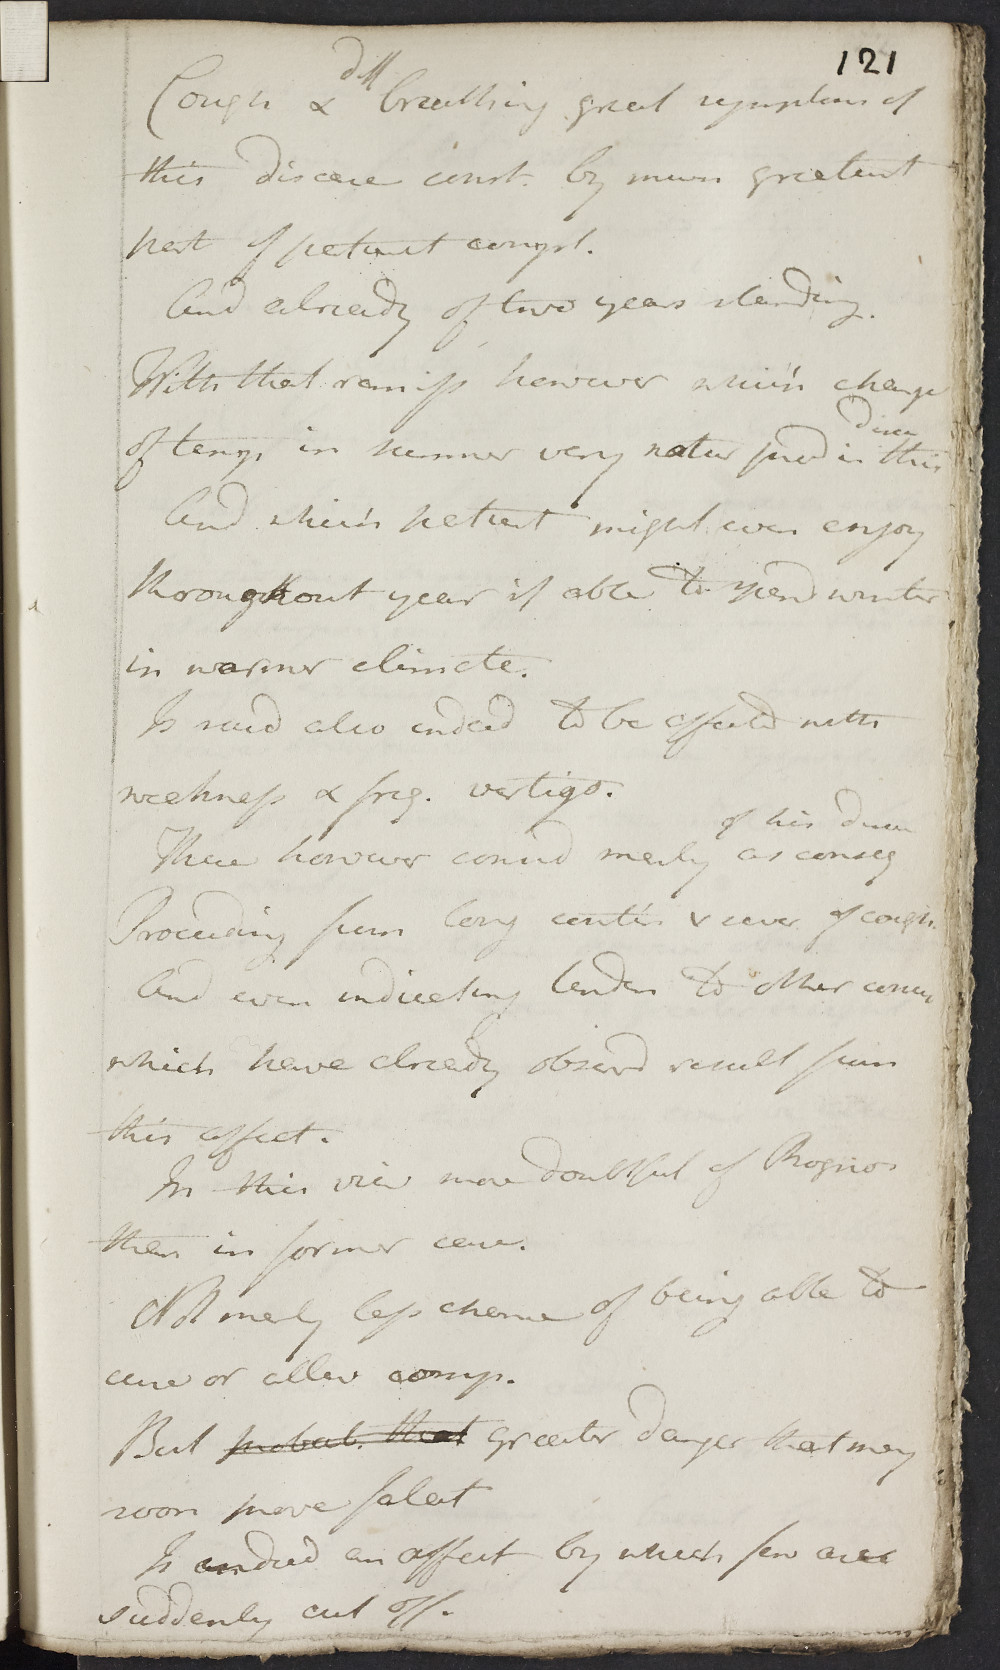 121
Cough & diff breathing great symptoms of
this disease const. by much greatest
part of patients compl.
And already of two years standing.
With that remiss however which change
of temp. in summer very natur prod in this disea
And which patient might even enjoy
throughout year if able to spend winter
in warmer climate.
Is said also indeed to be affected with
weakness & freq. vertigo.
These however consid merely as conseq of his disease
Proceeding from long contin & sever. of cough.
And even indicating tenden to other conseq
which have already observd result from
this affect.
In this view more doubtful of Prognos
than in former case.
Not merely less chance of being able to
cure or allev comp.
But probab. that greater danger that may
soon prove fatal
Is indeed an affect by which few are
suddenly cut off.